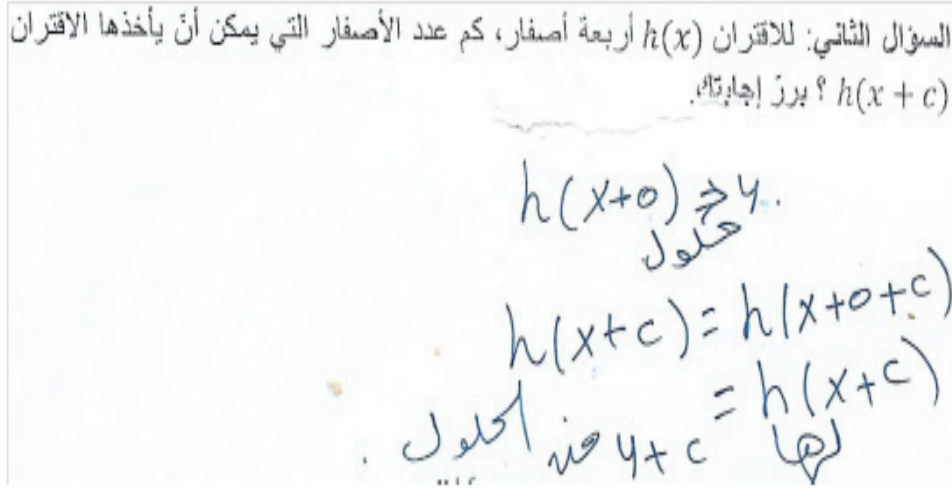 السؤال الثاني: للاقتران h(x) أربعة أصفار، كم عدد الأصفار التي يمكن أنّ يأخذها الاقتران
h(x + c) ؟ برزّ إجابتك.
h(x+0) ⇒ 4.
حلول
h(x+c) = h(x+0+c)
= h(x+c)
لها 4+c من الحلول.